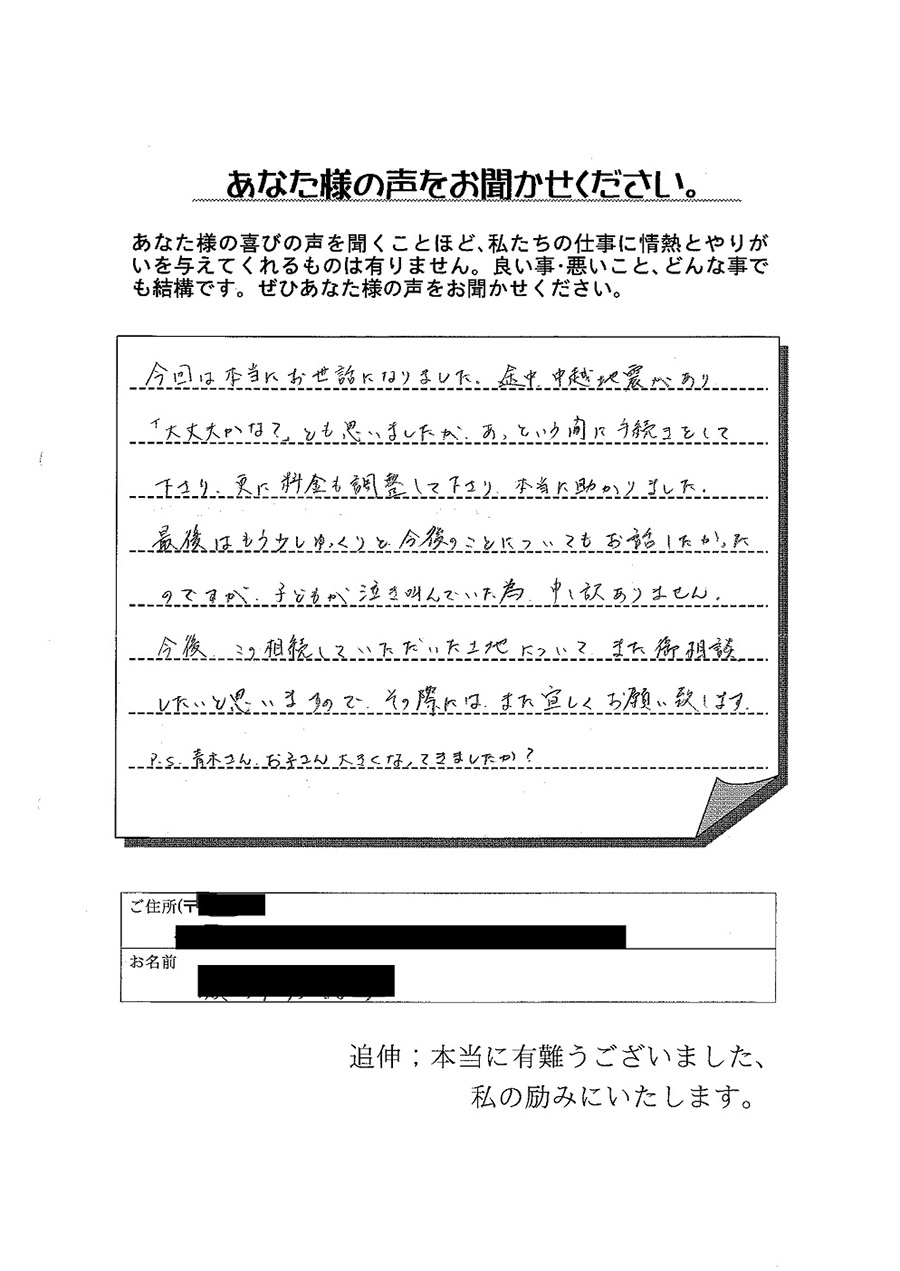 あなた様の声をお聞かせください。
あなた様の喜びの声を聞くことほど、私たちの仕事に情熱とやりが
いを与えてくれるものは有りません。良い事・悪いこと、どんな事で
も結構です。ぜひあなた様の声をお聞かせください。
今回は本当にお世話になりました。途中、中越地震があり
「大丈夫かな?」とも思いましたが、あっという間に手続きをして
下さり、更に料金も調整して下さり、本当に助かりました。
最後はもう少しゆっくりと、今後のことについてもお話したかった
のですが、子どもが泣き叫んでいた為、申し訳ありません。
今後、この相続していただいた土地について、また御相談
したいと思いますので、その際には、また宜しくお願い致します。
P.S. 青木さん、お子さん大きくなってきましたか?
ご住所(〒
お名前
追伸;本当に有難うございました、
私の励みにいたします。